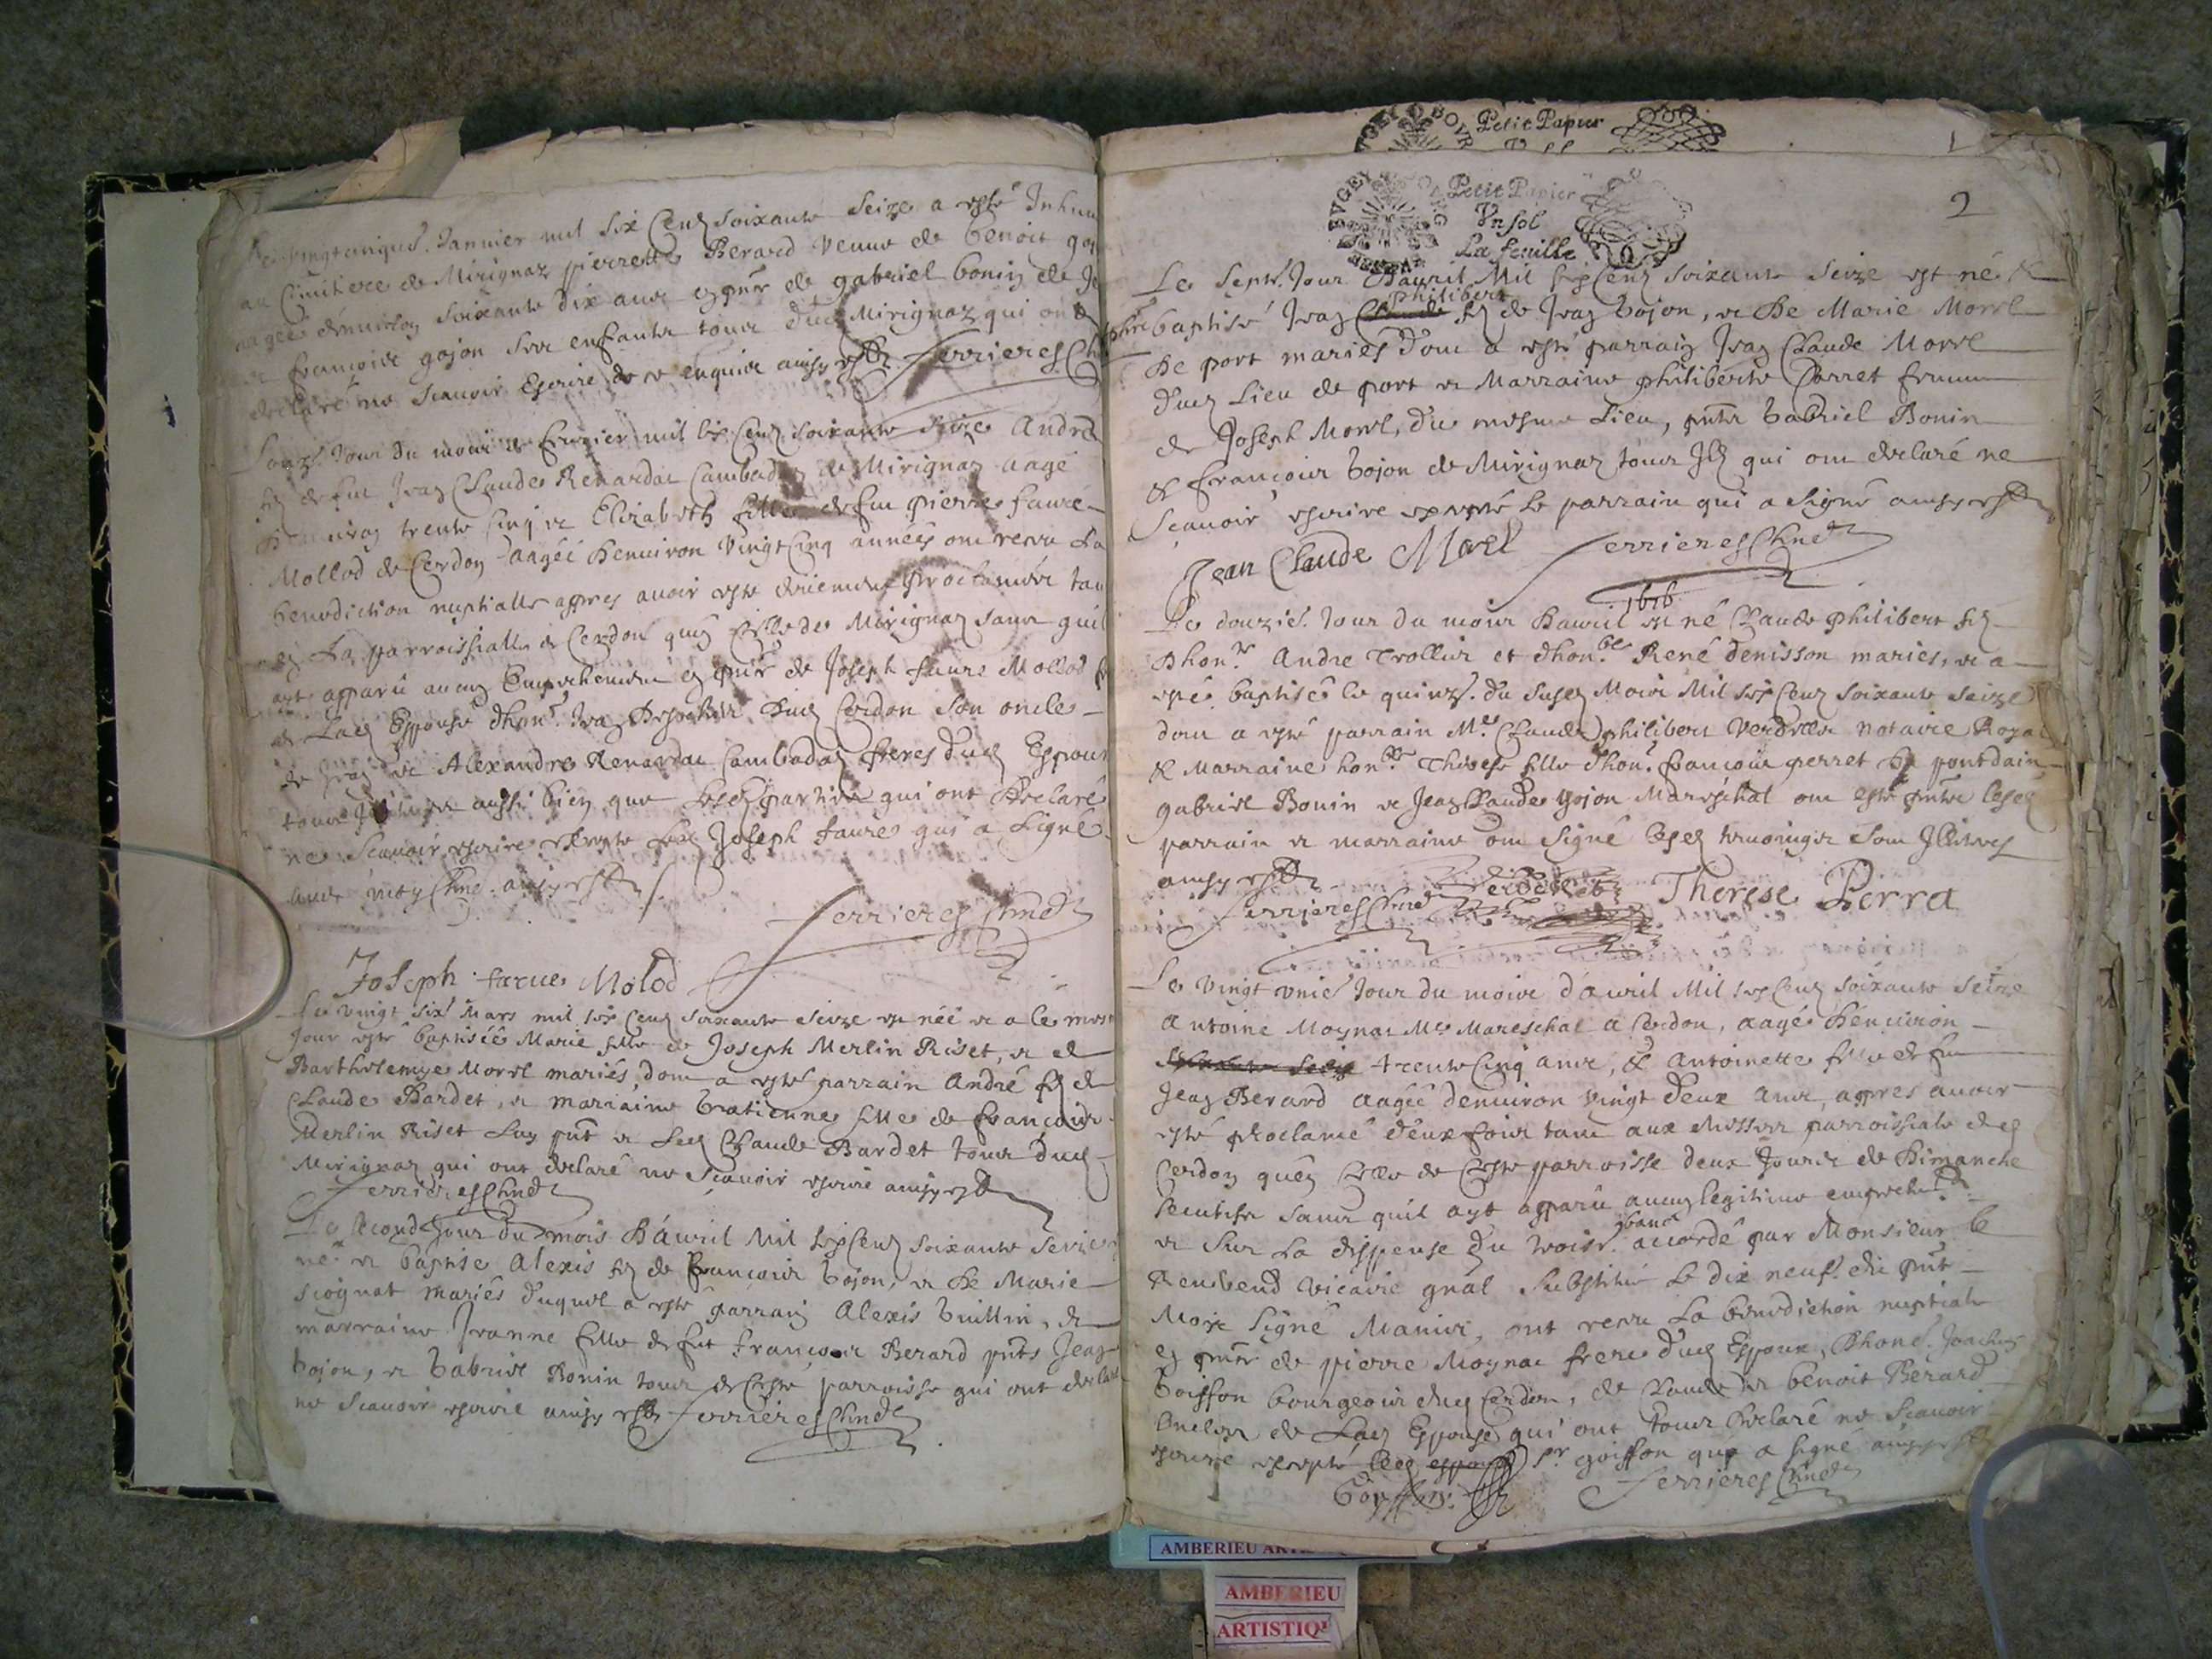 vingtcinqe. Januier mil six Cens soixante seize a esté Inhu
au Cimitiere de Mirignaz pierrette Berard veuue de benoit
aagée denuiron soixante dix ans en pnce de gabriel bonin de
et françois gojon ses enfants tous dud Mirignaz qui ont
declaré ne scauoir Escrire de ce enquis ainsy est Ferrieres
Jour du mois de feurier mil six Cens soixante seize André
fils de feu Jean Claude Renardat Cambadon de Mirignaz aagé
denuiron trente cinq et Elizabeth fille de feu pierre faure
Mollod de Cerdon aagée denuiron vingt Cinq années ont receu La
benediction nuptialle appres auoir esté proclamés tan
en La parroissialle de Cerdon quen Celle de Mirignaz sans quil
ayt apparu aucung Empechement en pnce de Joseph faure Mollod
de Lad Espouse dhont. Jean dud Cerdon son oncle
de Jean et Alexandre Renardat Cambadon freres dud Espoux
tous aussi bien que Lesd parties qui ont declaré
ne scauoir escrire excepté led Joseph faure qui a signé
auec moy ainsy est
Ferrieres
Joseph faure Molod
Le vingt six Mars mil six Cens soixante seize est née et a le mesme
Jour esté baptisée Marie fille de Joseph Merlin Riset, et de
Barthelemye Morel mariés, dont a esté parrain André fils de
Claude Bardet, et marraine Gratienne fille de françois
Merlin Riset Luy pnt et Led Claude Bardet tous dud
Mirignaz qui ont declaré ne scauoir escrire ainsy est
Ferrieres
Le second Jour du mois dauril mil six Cens soixante seize
né et baptisé Alexis fils de françois Gojon, et de Marie
mariés duquel a esté parrain Alexis Guillin, et
marraine Jeanne fille de feu françois Berard pnts Jean
Gojon, et Gabriel Bonin tous de Ceste parroisse qui ont declaré
ne scauoir escrire ainsy est Ferrieres
Petit Papier
1
BVGEY
Petit Papier
Vn sol
La feuille
2
Le Septe. Jour dauril Mil six Cens soixante seize est né &
philibert
baptisé Jean fils de Jean Gojon, et de Marie Morel
de port mariés dont a esté parrain Jean Claude Morel
dud Lieu de port et Marraine philiberte Perret femme
de Joseph Morel, du mesme Lieu, pnts Gabriel Bonin
& françois Gojon de Mirignaz tous qui ont declaré ne
scauoir escrire excepté Le parrain qui a signé ainsy est
Jean Claude Morel Ferrieres
1676
Le douzie. Jour du mois dauril est né Claude philibert fils
dhonr. Andre Trollier et dhonble. René denisson mariés, et a
esté baptisé le quinze. du susd Mois Mil six Cens soixante seize
dont a esté parrain Me. Claude philibert Verdellet notaire Royal
& Marraine honble. Therese fille dhon. françois perret de pontdain
gabriel Bonin et Jean Claude Gojon Mareschal ont esté pnts lesd
parrain et marraine ont signé lesd temoings sont Illiterés
ainsy est
Ferrieres Verdellet Therese Perra
Le vingt vnie. Jour du mois dauril Mil six Cens soixante seize
Antoine Moynat Me. Mareschal a Cerdon, aagé denuiron
trente Cinq ans, & Antoinette fille de feu
Jean Berard aagée denuiron vingt deux ans, appres auoir
esté proclamé deux fois tant aux Messes parroissiales de
Cerdon quen Celle de Ceste parroisse deux Jours de dimanche
sans quil ayt apparu aucung legitime empechemt.
banc
et sur La dispense du troise. accordé par Monsieur le
Reuerend vicaire gnal substitué Le dix neufe. du pnt
Mois signé Manier, ont receu La benediction nuptiale
en pnce de pierre Moynat frere dud Espoux, dhone. Joachin
Goiffon bourgeois dud Cerdon, de Claude et benoit Berard
oncles de Lad Espouse qui ont tous declaré ne scauoir
escrire excepté sr. goiffon qui a signé ainsy est
Goyffon. Ferrieres
AMBERIEU
AMBERIEU
ARTISTIQ